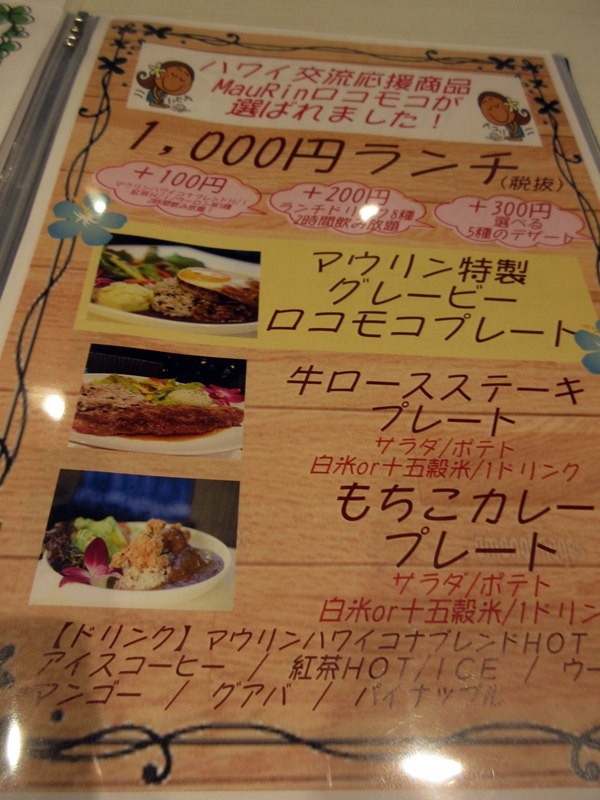 ハワイ交流応援商品
MauRinロコモコが
選ばれました！
1,000円ランチ
(税抜)
+100円
2時間飲み放題
+200円
ランチドリンク8種
2時間飲み放題
+300円
選べる
5種のデザート
マウリン特製
グレービー
ロコモコプレート
牛ロースステーキ
プレート
サラダ/ポテト
白米or十五穀米/1ドリンク
もちこカレー
プレート
サラダ/ポテト
白米or十五穀米/1ドリン
【ドリンク】マウリンハワイコナブレンドHOT
アイスコーヒー / 紅茶HOT/ICE / ウー
アンゴー / グアバ / パイナップル